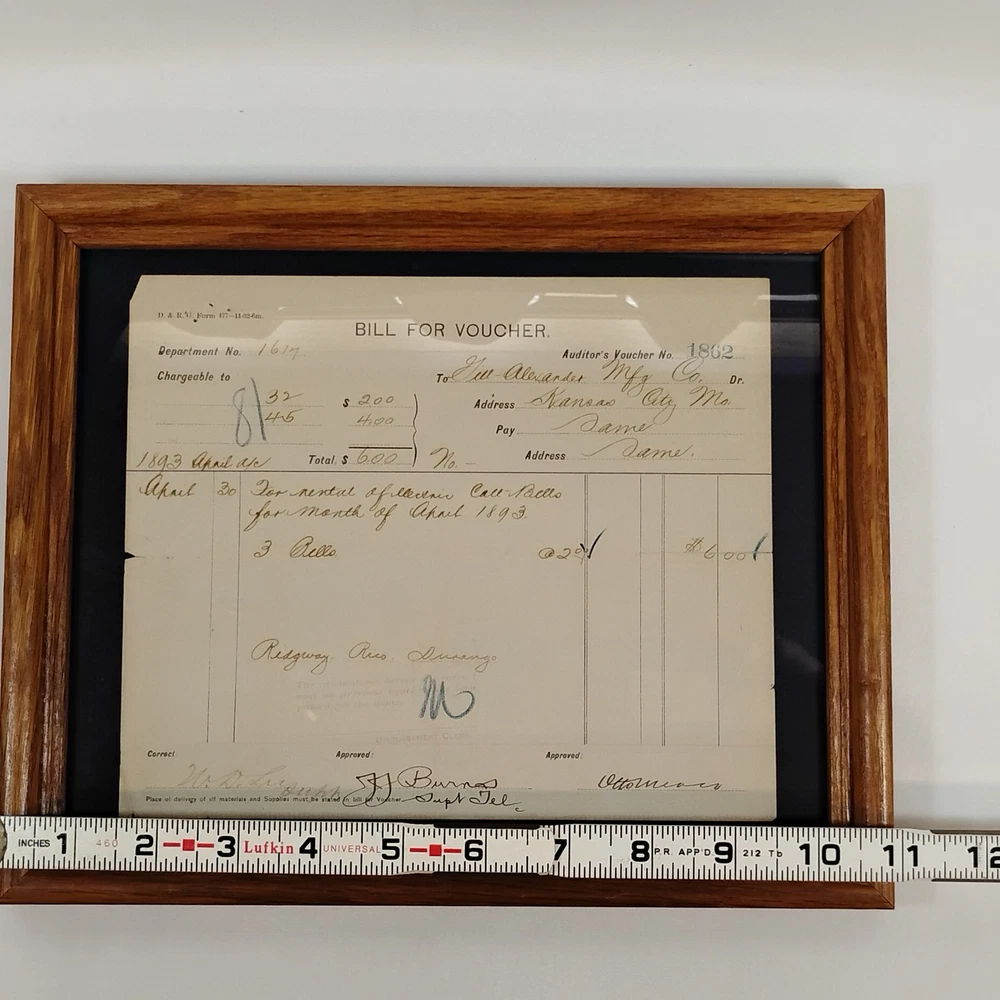 Form 477—11-92-6m.
BILL FOR VOUCHER.
Department No. 1617
Auditor's Voucher No. 1862
Chargeable to
To Alexander Mfg Co. Dr.
81 32 $ 2.00
Address Kansas City Mo.
45 4.00
Pay Same
1893 April a/c Total, $ 6.00 No. —
Address Same.
April 30 For rental of Electric Call-Bells
for month of April 1893.
3 Bells @ 2 $ 6.00
Ridgway, Rico, Durango
M
Correct: Approved: Approved:
W. D. JJ Burns Otto Mears
Supt Tel
Place of delivery of all materials and Supplies must be stated in bill for Voucher.
INCHES 1 460 2 3 Lufkin 4 UNIVERSAL 5 6 7 8 P.R. APP'D. 9 212 Tb 10 11 12